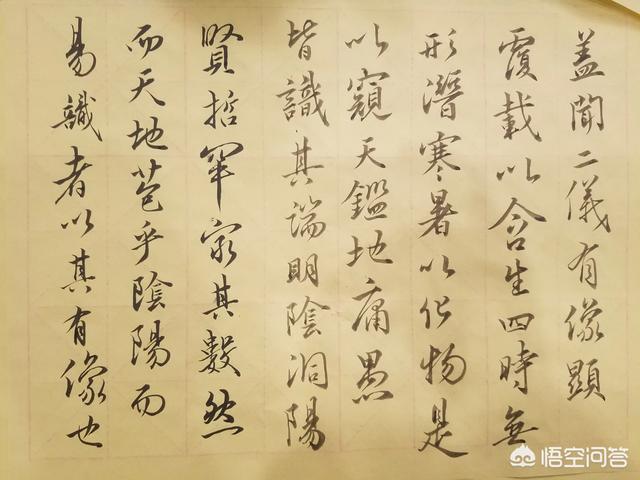 盖聞二儀有像顯
覆載以含生四時無
形潛寒暑以化物是
以窺天鑑地庸愚
皆識其端明陰洞陽
賢哲罕窮其數然
而天地苞乎陰陽而
易識者以其有像也
悟空问答